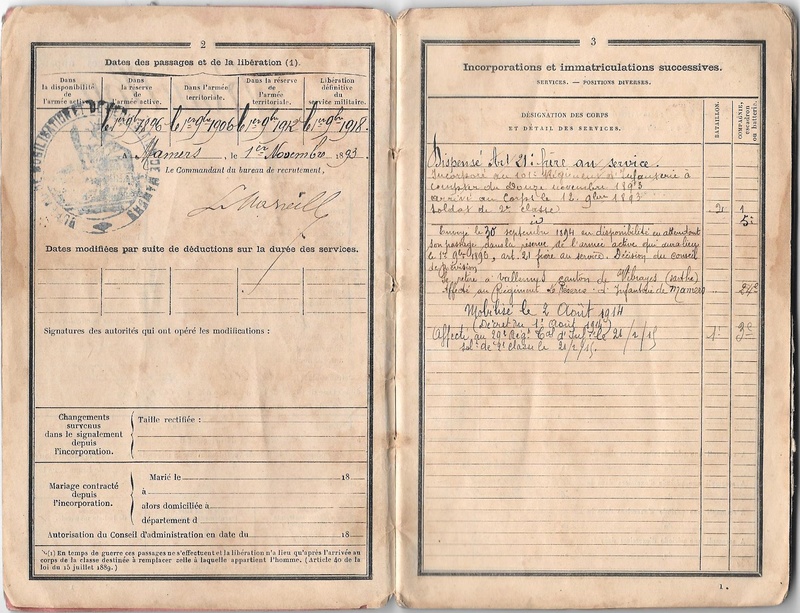 2
Dates des passages et de la libération (1).
Dans la disponibilité de l'armée active.
Dans la réserve de l'armée active.
Dans l'armée territoriale.
Dans la réserve de l'armée territoriale.
Libération définitive du service militaire.
le 1er 9bre 1896
le 1er 9bre 1906
le 1er 9bre 1912
le 1er 9bre 1918.
A Mamers, le 1er Novembre 1893.
Le Commandant du bureau de recrutement,
Dates modifiées par suite de déductions sur la durée des services.
Signatures des autorités qui ont opéré les modifications :
Changements survenus dans le signalement depuis l'incorporation.
Taille rectifiée :
Mariage contracté depuis l'incorporation.
Marié le 18
à
alors domiciliée à
département d
Autorisation du Conseil d'administration en date du 18
(1) En temps de guerre ces passages ne s'effectuent et la libération n'a lieu qu'après l'arrivée au
corps de la classe destinée à remplacer celle à laquelle appartient l'homme. (Article 40 de la
loi du 15 juillet 1889.)
3
Incorporations et immatriculations successives.
SERVICES. — POSITIONS DIVERSES.
DÉSIGNATION DES CORPS
ET DÉTAIL DES SERVICES.
BATAILLON.
COMPAGNIE, escadron ou batterie.
Dispensé Art 21. frère au service.
Incorporé au 101e Régiment d'Infanterie à
compter du Douze novembre 1893
arrivé au Corps le 12 9bre 1893
Soldat de 2e classe 2 1
5
Envoyé le 30 septembre 1894 en disponibilité en attendant
son passage dans la réserve de l'armée active qui aura lieu
le 1er 9bre 1896, art. 21 frère au service. Décision du conseil
de révision
Se retire à Vallennes canton de Vibraye (Sarthe)
Affecté au Régiment de Réserve d'Infanterie de Mamers 24e
Mobilisé le 2 Août 1914
(Décret du 1er Août 1914)
Affecté au 20e Rég. Tal d'Inf. le 21/2/15 1e 3e
sol. de 2e classe le 21/2/15.
1.